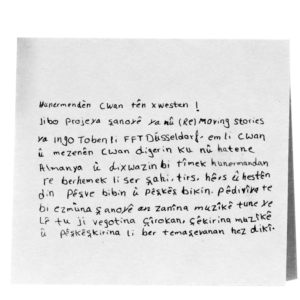 Hunermendên Cwan tên xwesten !
Jibo Projeya şanoyê ya nû (Re) Moving stories
ya Ingo Toben li FFT Düsseldorf- em li Cwan
û mezenên Cwan digerin ku nû hatene
Almanya û dixwazin bi tîmek hunermandan
re berhemek li ser şahî, tirs, hêrs û hestên
din pêşve bibin û pêşkêş bikin. Pêdivîya te
bi ezmûna şanoyê an zanîna muzîkê tune ye
Lê tu ji vegotina çîrokan, çêkirina muzîkê
û pêşkêşkirina li ber temaşevanan hez dikî.